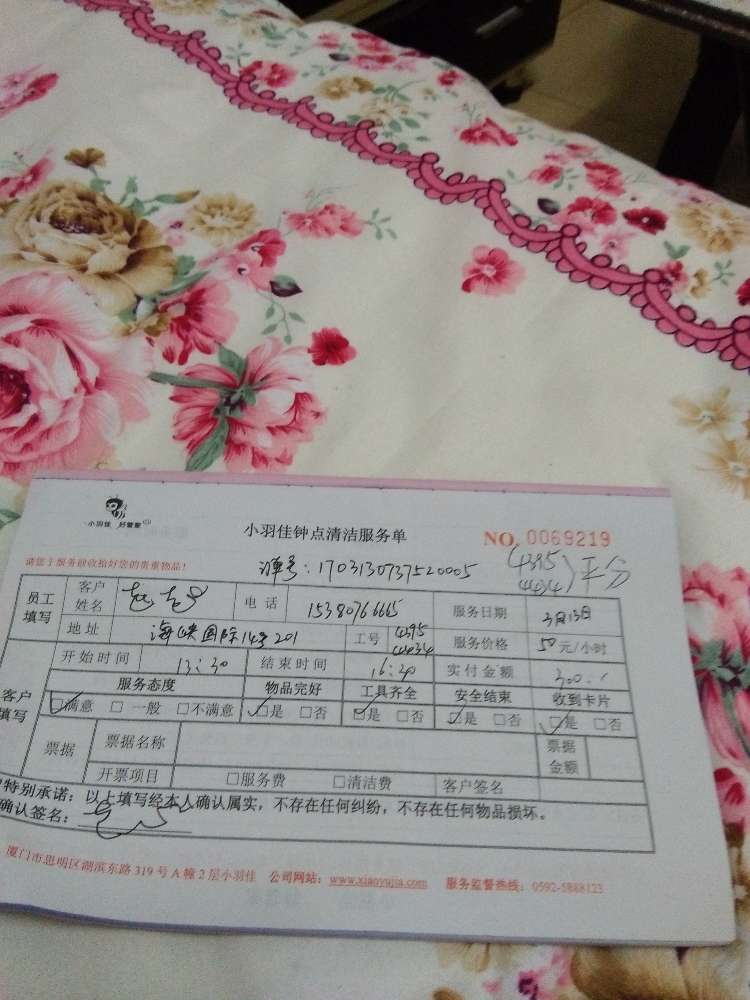 小羽佳 好管家
小羽佳钟点清洁服务单
NO. 0069219
请您于服务前收拾好您的贵重物品!
单号:1703130737520005
(4395 4434) 平分
员工填写 客户姓名 电话 15380766665 服务日期 3月13日
地址 海峡国际14号201 工号 4395 4434 服务价格 50元/小时
开始时间 13:30 结束时间 16:30 实付金额 300
客户填写 服务态度 物品完好 工具齐全 安全结束 收到卡片
☑满意 □一般 □不满意 ☑是 □否 ☑是 □否 ☑是 □否 ☑是 □否
票据 票据名称 票据金额
开票项目 □服务费 □清洁费 客户签名
特别承诺:以上填写经本人确认属实,不存在任何纠纷,不存在任何物品损坏。
确认签名:
厦门市思明区湖滨东路319号A幢2层小羽佳 公司网站:www.xiaoyujia.com 服务监督热线:0592-5888123